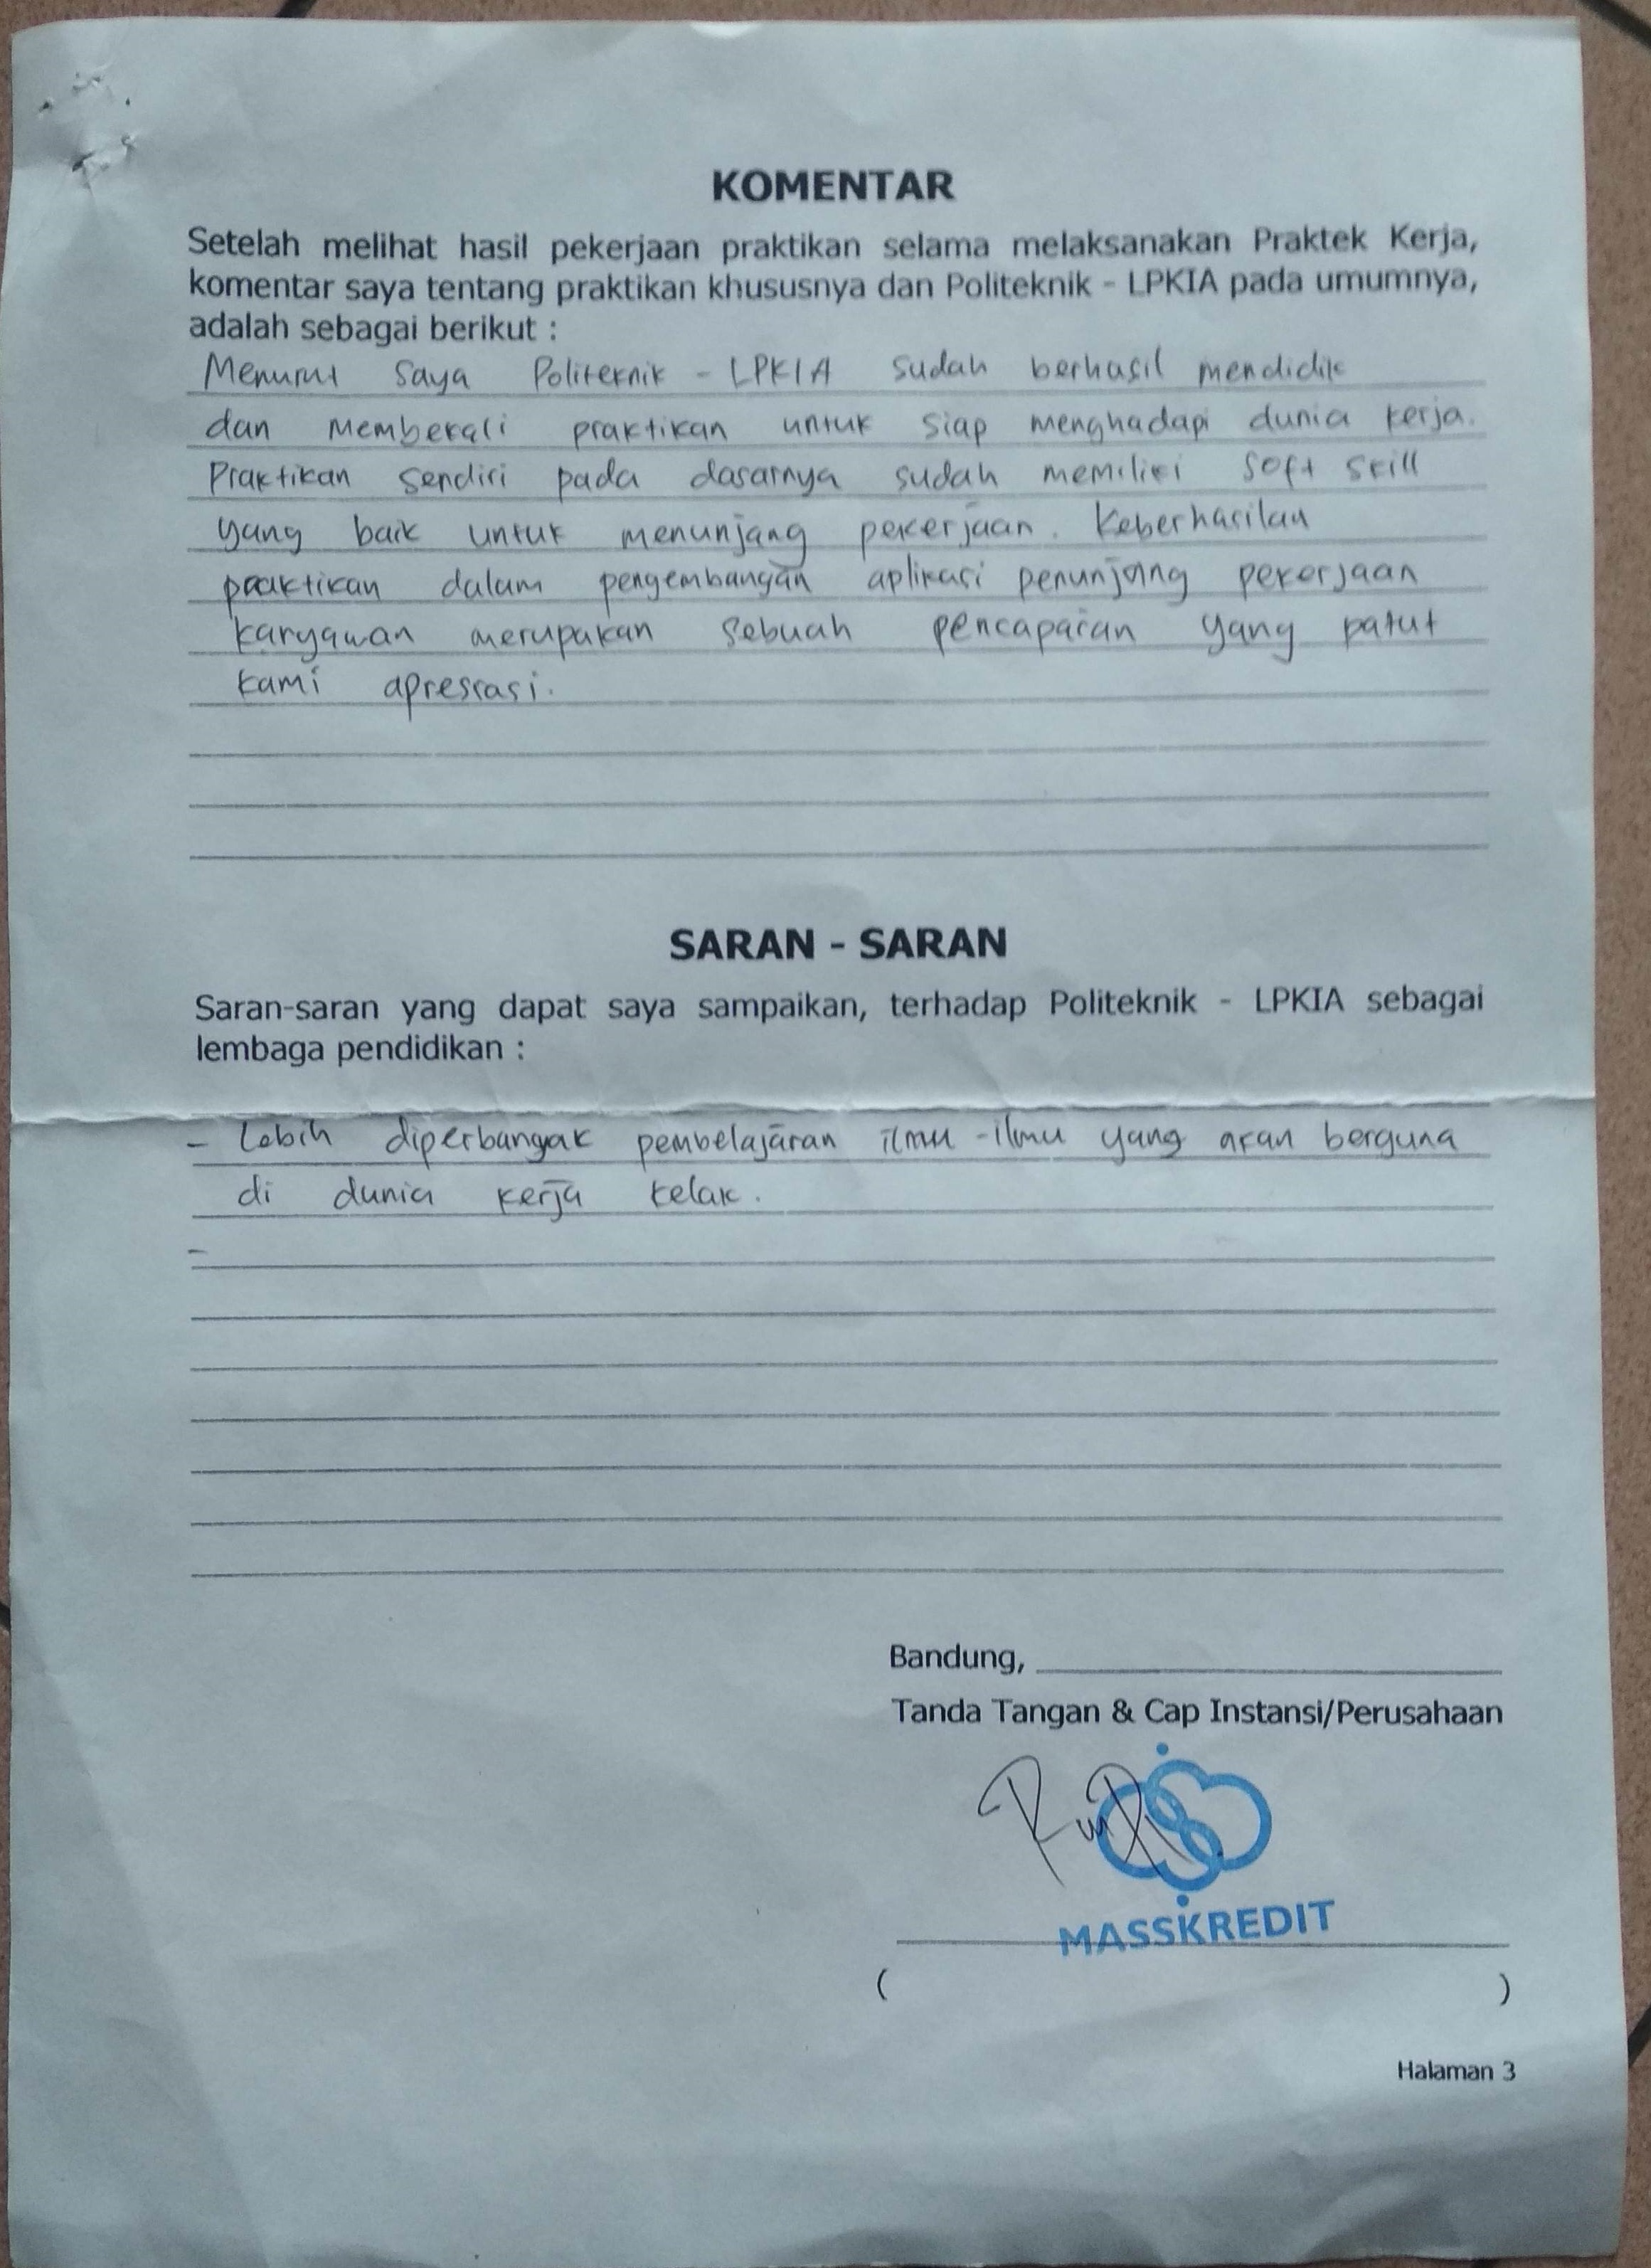 KOMENTAR
Setelah melihat hasil pekerjaan praktikan selama melaksanakan Praktek Kerja,
komentar saya tentang praktikan khususnya dan Politeknik - LPKIA pada umumnya,
adalah sebagai berikut :
Menurut saya Politeknik - LPKIA sudah berhasil mendidik
dan membekali praktikan untuk siap menghadapi dunia kerja.
Praktikan sendiri pada dasarnya sudah memiliki soft skill
yang baik untuk menunjang pekerjaan. Keberhasilan
praktikan dalam pengembangan aplikasi penunjang pekerjaan
karyawan merupakan sebuah pencapaian yang patut
kami apresiasi.
SARAN - SARAN
Saran-saran yang dapat saya sampaikan, terhadap Politeknik - LPKIA sebagai
lembaga pendidikan :
- Lebih diperbanyak pembelajaran ilmu-ilmu yang akan berguna
di dunia kerja kelak.
-
Bandung,
Tanda Tangan & Cap Instansi/Perusahaan
MASSKREDIT
( )
Halaman 3